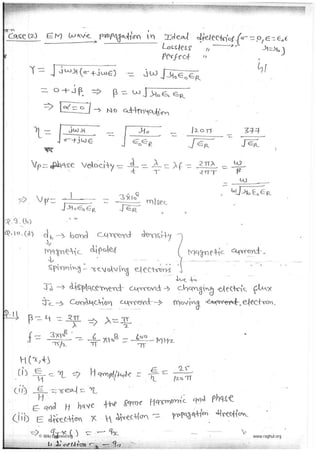 Case(2) EM wave propagation in Ideal dielectric (σ=0, ε=ε₀εᵣ
Lossless " μ=μ₀)
Perfect "
γ = √jωμ(σ+jωε) = jω√μ₀ε₀εR
= 0+jβ ⇒ β = ω√μ₀ε₀εR
⇒ α=0 → No attenuation
η = √jωμ/σ+jωε = √μ₀/ε₀εR = 120π/√εR = 377/√εR
Vp = phase velocity = d/t = λ/T = λf = 2πλ/2πT = ω/β
= ω/ω√μ₀ε₀εR
⇒ Vp = 1/√μ₀ε₀εR = 3×10⁸/√εR m/sec
P.9.(b)
P.10.(d) db → bond current density
magnetic dipoles magnetic current.
spinning - revolving electrons
due to
Jd → displacement current → changing electric flux
Jc → conduction current → moving electron.
P.1) β=4 = 2π/λ ⇒ λ=π/2
f = 3×10⁸/π/2 = 6/π ×10⁸ = 600/π MHz
H(z,t)
(i) E/H = η ⇒ H amplitude = E/η = 25/120π
(ii) E/H = real = η
E and H have the same Harmonic and phase
(iii) E direction × H direction = propagation direction
www.raghul.org